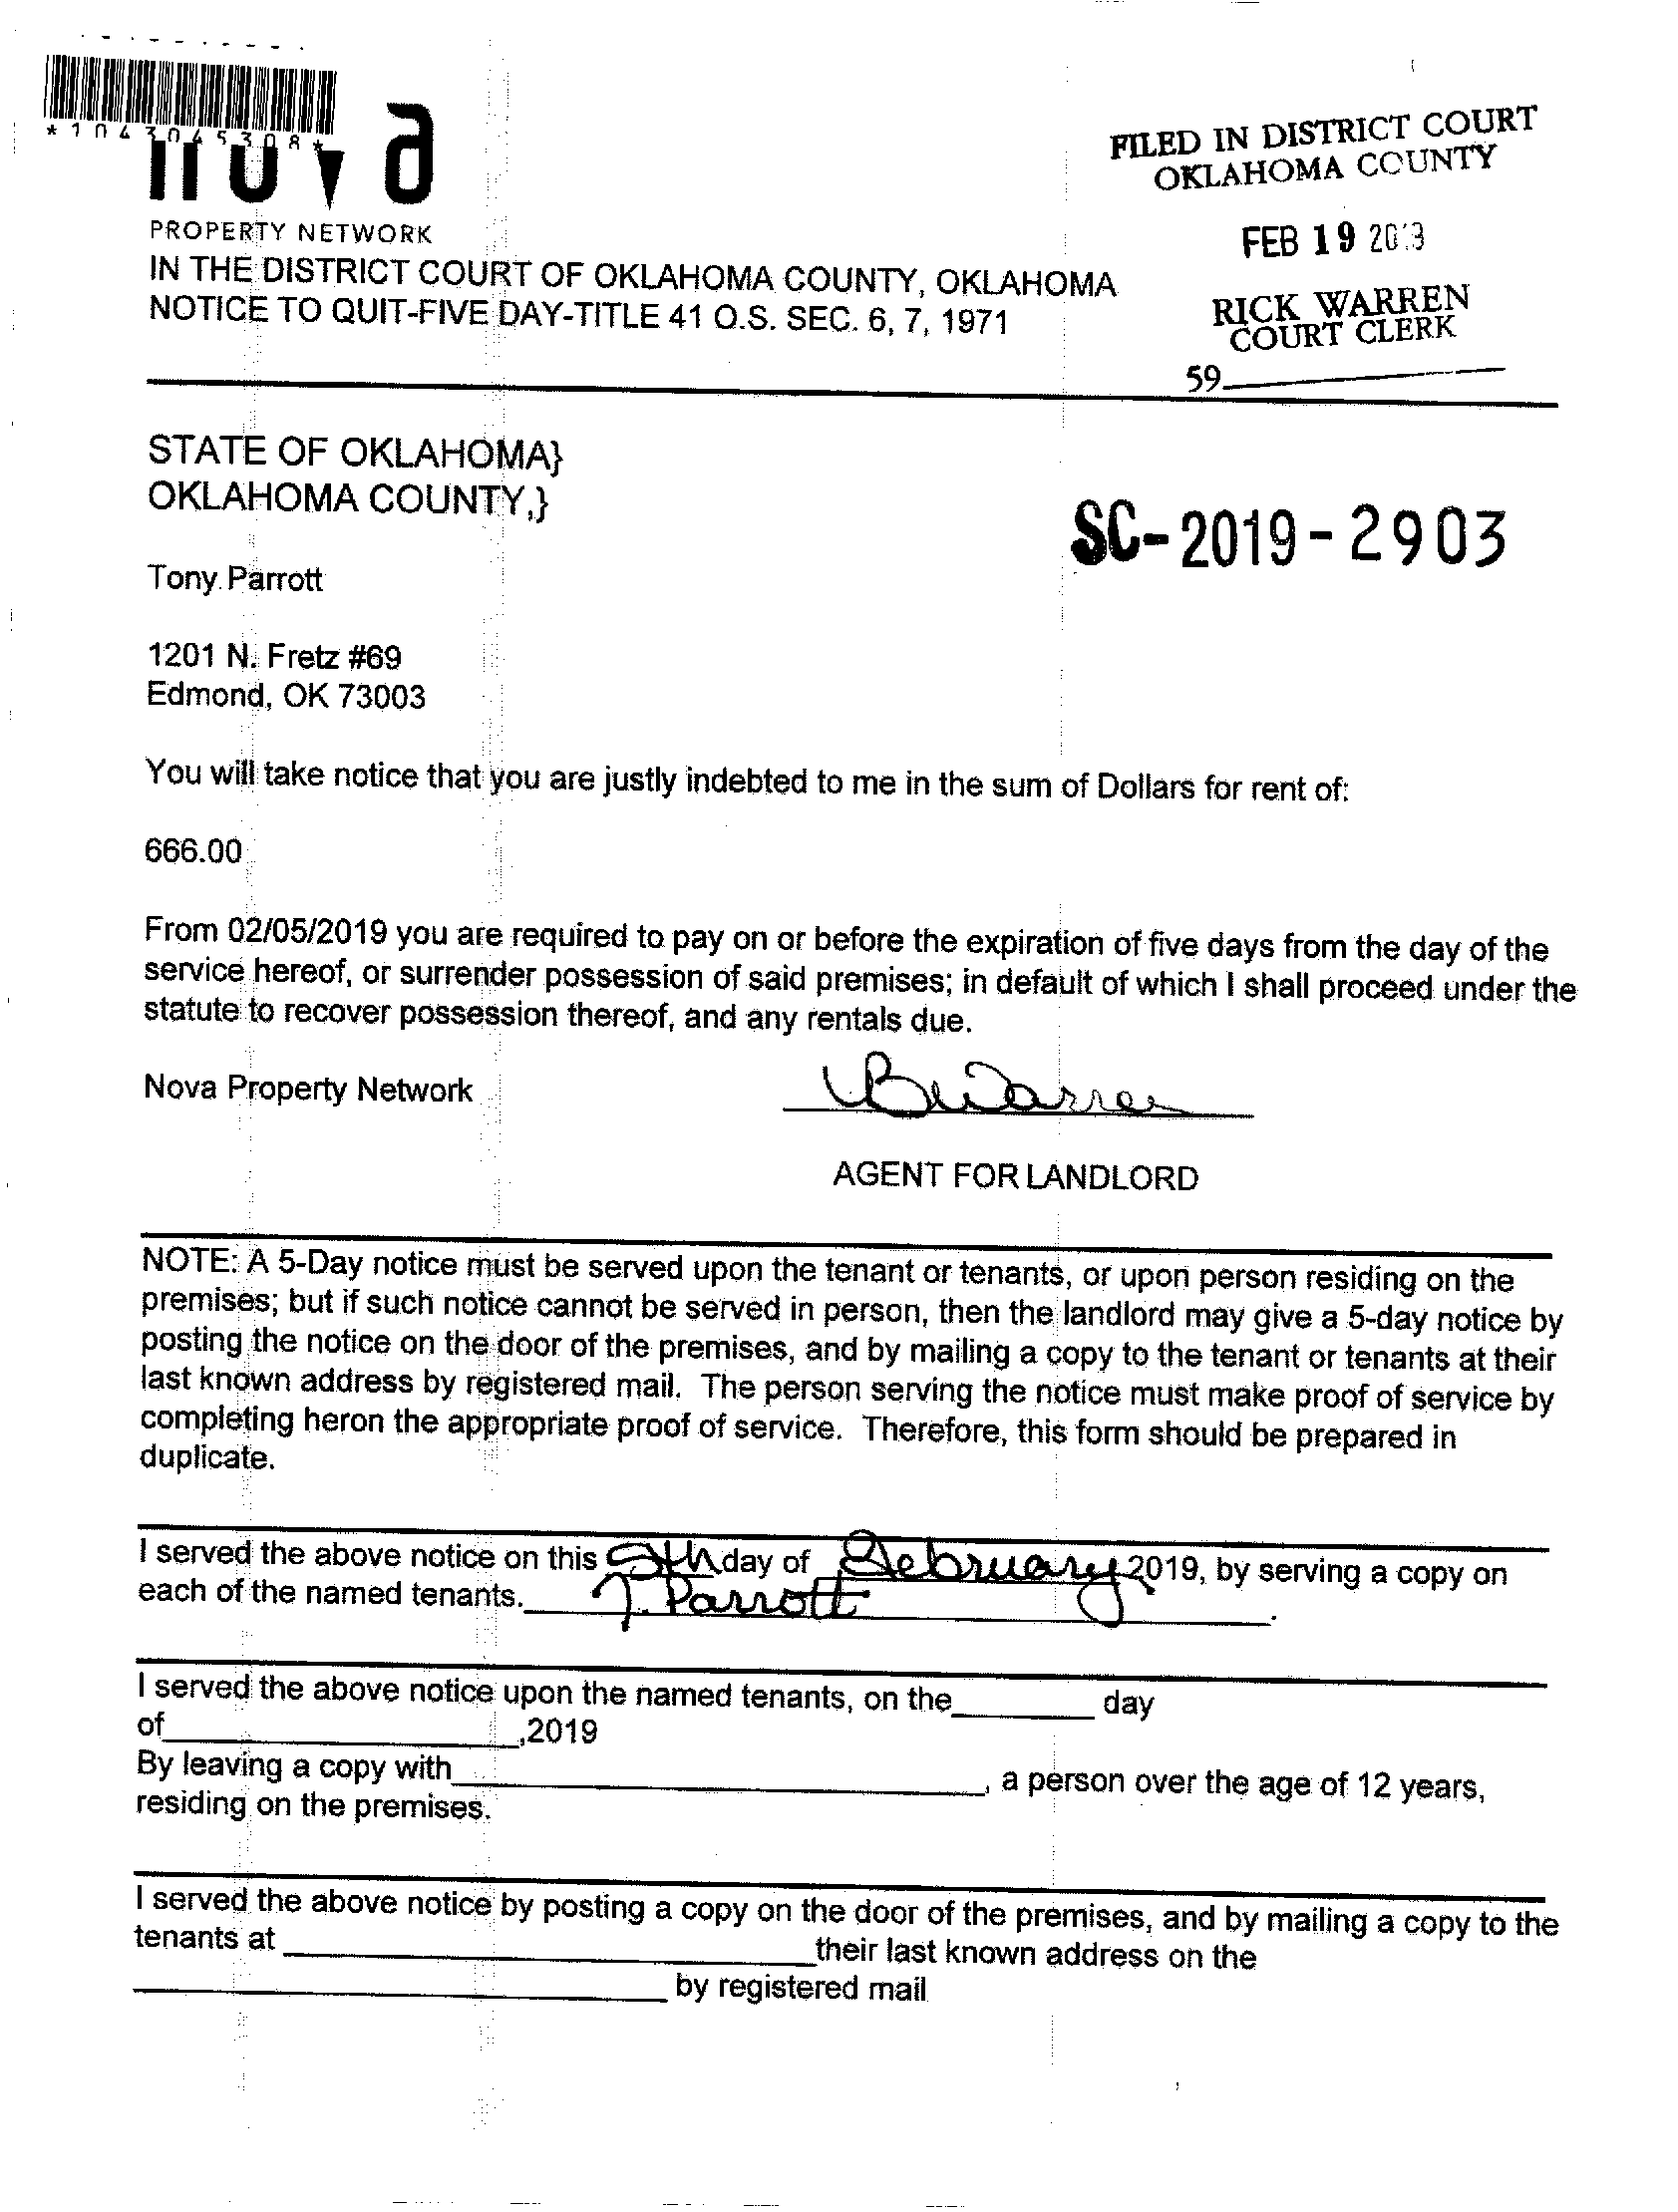 *1043045308*
nova
PROPERTY NETWORK
FILED IN DISTRICT COURT
OKLAHOMA COUNTY
FEB 19 2019
RICK WARREN
COURT CLERK
59
IN THE DISTRICT COURT OF OKLAHOMA COUNTY, OKLAHOMA
NOTICE TO QUIT-FIVE DAY-TITLE 41 O.S. SEC. 6, 7, 1971
STATE OF OKLAHOMA}
OKLAHOMA COUNTY,}
SC-2019-2903
Tony Parrott
1201 N. Fretz #69
Edmond, OK 73003
You will take notice that you are justly indebted to me in the sum of Dollars for rent of:
666.00
From 02/05/2019 you are required to pay on or before the expiration of five days from the day of the
service hereof, or surrender possession of said premises; in default of which I shall proceed under the
statute to recover possession thereof, and any rentals due.
Nova Property Network
AGENT FOR LANDLORD
NOTE: A 5-Day notice must be served upon the tenant or tenants, or upon person residing on the
premises; but if such notice cannot be served in person, then the landlord may give a 5-day notice by
posting the notice on the door of the premises, and by mailing a copy to the tenant or tenants at their
last known address by registered mail. The person serving the notice must make proof of service by
completing heron the appropriate proof of service. Therefore, this form should be prepared in
duplicate.
I served the above notice on this day of February 2019, by serving a copy on
each of the named tenants. T. Parrott.
I served the above notice upon the named tenants, on the day
of ,2019
By leaving a copy with , a person over the age of 12 years,
residing on the premises.
I served the above notice by posting a copy on the door of the premises, and by mailing a copy to the
tenants at their last known address on the
by registered mail